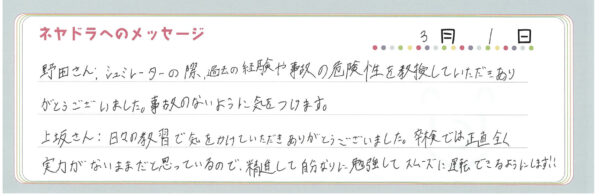 ネヤドラへのメッセージ
3月 1日
野田さん、シュミレーターの際、過去の経験や事故の危険性を教授していただきあり
がとうございました。事故のないように気をつけます。
上坂さん：日々の教習で気をかけていただきありがとうございました。卒検では正直全く
実力がないままだと思っているので、精進して自分なりに勉強してスムーズに運転できるようにします!!